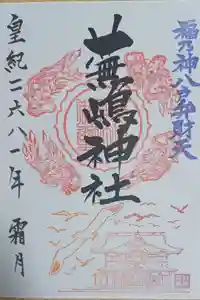 福乃神八戸弁財天
蕪嶋神社
皇紀二六八一年 霜月